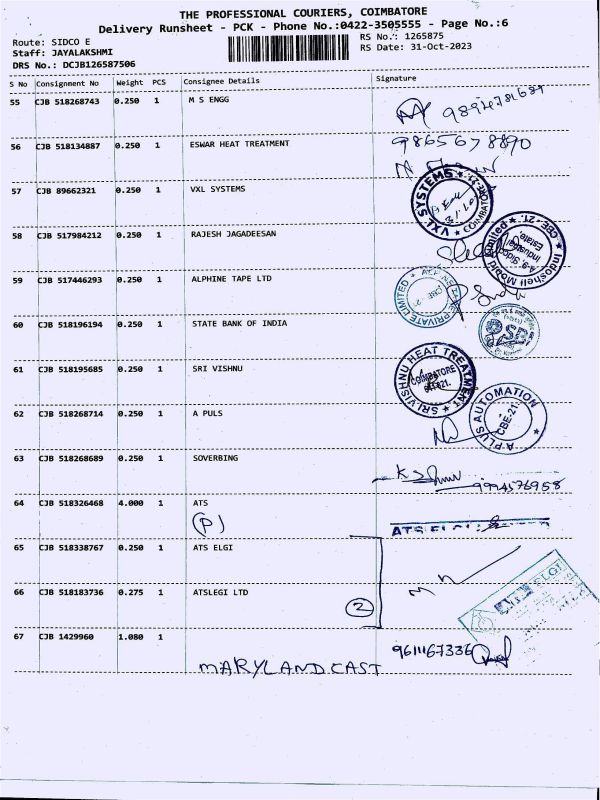 THE PROFESSIONAL COURIERS, COIMBATORE
Delivery Runsheet - PCK - Phone No.:0422-3505555 - Page No.:6
Route: SIDCO E
Staff: JAYALAKSHMI
DRS No.: DCJB126587506
RS No.: 1265875
RS Date: 31-Oct-2023
S No Consignment No Weight PCS Consignee Details Signature
55 CJB 518268743 0.250 1 M S ENGG
56 CJB 518134887 0.250 1 ESWAR HEAT TREATMENT 9865678890
57 CJB 89662321 0.250 1 VXL SYSTEMS
VXL SYSTEMS
COIMBATORE-21
58 CJB 517984212 0.250 1 RAJESH JAGADEESAN
Indoshell Mould Limited CBE-21.
A-9, Sidco
Industrial
Estate,
59 CJB 517446293 0.250 1 ALPHINE TAPE LTD
PRIVATE LIMITED
CBE-21
60 CJB 518196194 0.250 1 STATE BANK OF INDIA
61 CJB 518195685 0.250 1 SRI VISHNU
SRI VISHNU HEAT TREATMENT
COIMBATORE
641 021.
62 CJB 518268714 0.250 1 A PULS
A PLUS AUTOMATION
CBE-21
63 CJB 518268689 0.250 1 SOVERBING
9994576958
64 CJB 518326468 4.000 1 ATS
(P)
ATS ELGI
65 CJB 518338767 0.250 1 ATS ELGI
66 CJB 518183736 0.275 1 ATSLEGI LTD
2
ELGI
67 CJB 1429960 1.080 1 9611167336
MARYLANDCAST